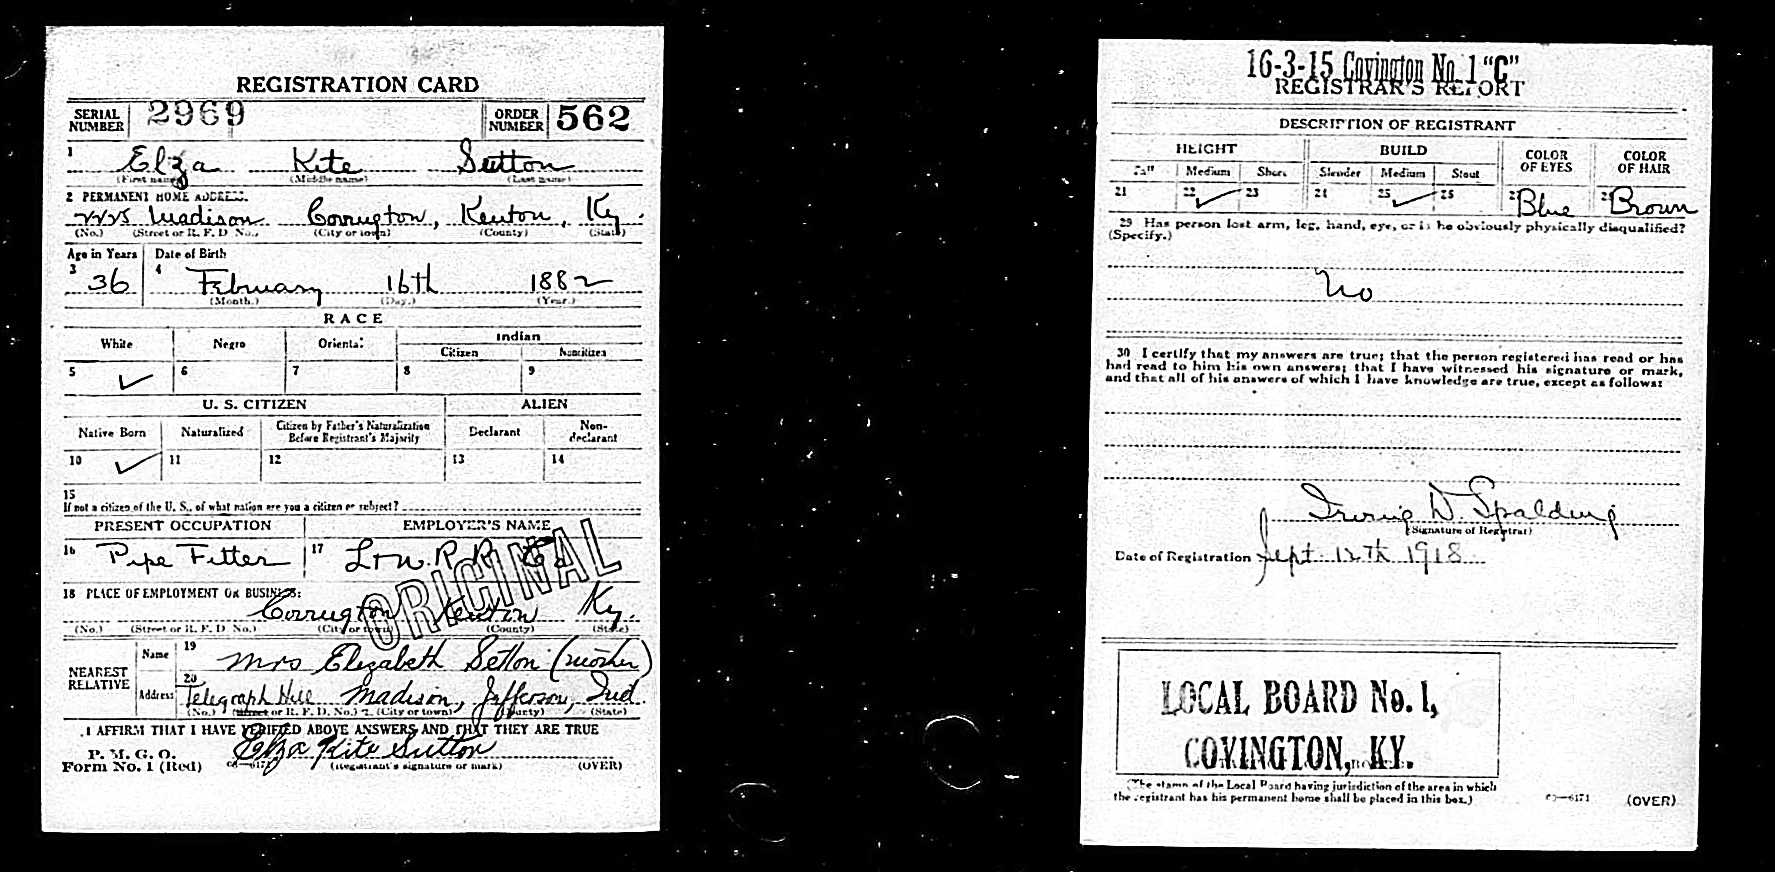 REGISTRATION CARD
SERIAL NUMBER 2969 ORDER NUMBER 562
1 Elza Kite Sutton
(First name) (Middle name) (Last name)
2 PERMANENT HOME ADDRESS:
Madison Covington, Kenton, Ky.
(No.) (Street or R. F. D. No.) (City or town) (County) (State)
Age in Years Date of Birth
3 36 4 February 16th 1882
(Month.) (Day.) (Year.)
RACE
White Negro Oriental Indian
Citizen Noncitizen
5 ✓ 6 7 8 9
U. S. CITIZEN ALIEN
Native Born Naturalized Citizen by Father's Naturalization Before Registrant's Majority Declarant Non-declarant
10 ✓ 11 12 13 14
15
If not a citizen of the U. S., of what nation are you a citizen or subject?
PRESENT OCCUPATION EMPLOYER'S NAME
16 Pipe Fitter 17 L + N. R. R. Co
ORIGINAL
18 PLACE OF EMPLOYMENT OR BUSINESS:
Covington Kenton Ky.
(No.) (Street or R. F. D. No.) (City or town) (County) (State)
NEAREST RELATIVE
Name 19 Mrs Elizabeth Sutton (mother)
Address 20 Telegraph Hill Madison, Jefferson, Ind.
(No.) (Street or R. F. D. No.) (City or town) (County) (State)
I AFFIRM THAT I HAVE VERIFIED ABOVE ANSWERS AND THAT THEY ARE TRUE
P. M. G. O.
Form No. 1 (Red) Elza Kite Sutton
(Registrant's signature or mark) (OVER)
16-3-15 Covington No. 1 "C"
REGISTRAR'S REPORT
DESCRIPTION OF REGISTRANT
HEIGHT BUILD COLOR OF EYES COLOR OF HAIR
Tall Medium Short Slender Medium Stout
21 22 ✓ 23 24 25 ✓ 26 27 Blue 28 Brown
29 Has person lost arm, leg, hand, eye, or is he obviously physically disqualified?
(Specify.)
No
30 I certify that my answers are true; that the person registered has read or has
had read to him his own answers; that I have witnessed his signature or mark,
and that all of his answers of which I have knowledge are true, except as follows:
Irving D. Spalding
(Signature of Registrar)
Date of Registration Sept. 12th 1918
LOCAL BOARD No. 1,
COVINGTON, KY.
(The stamp of the Local Board having jurisdiction of the area in which
the registrant has his permanent home shall be placed in this box.)
03—6171 (OVER)